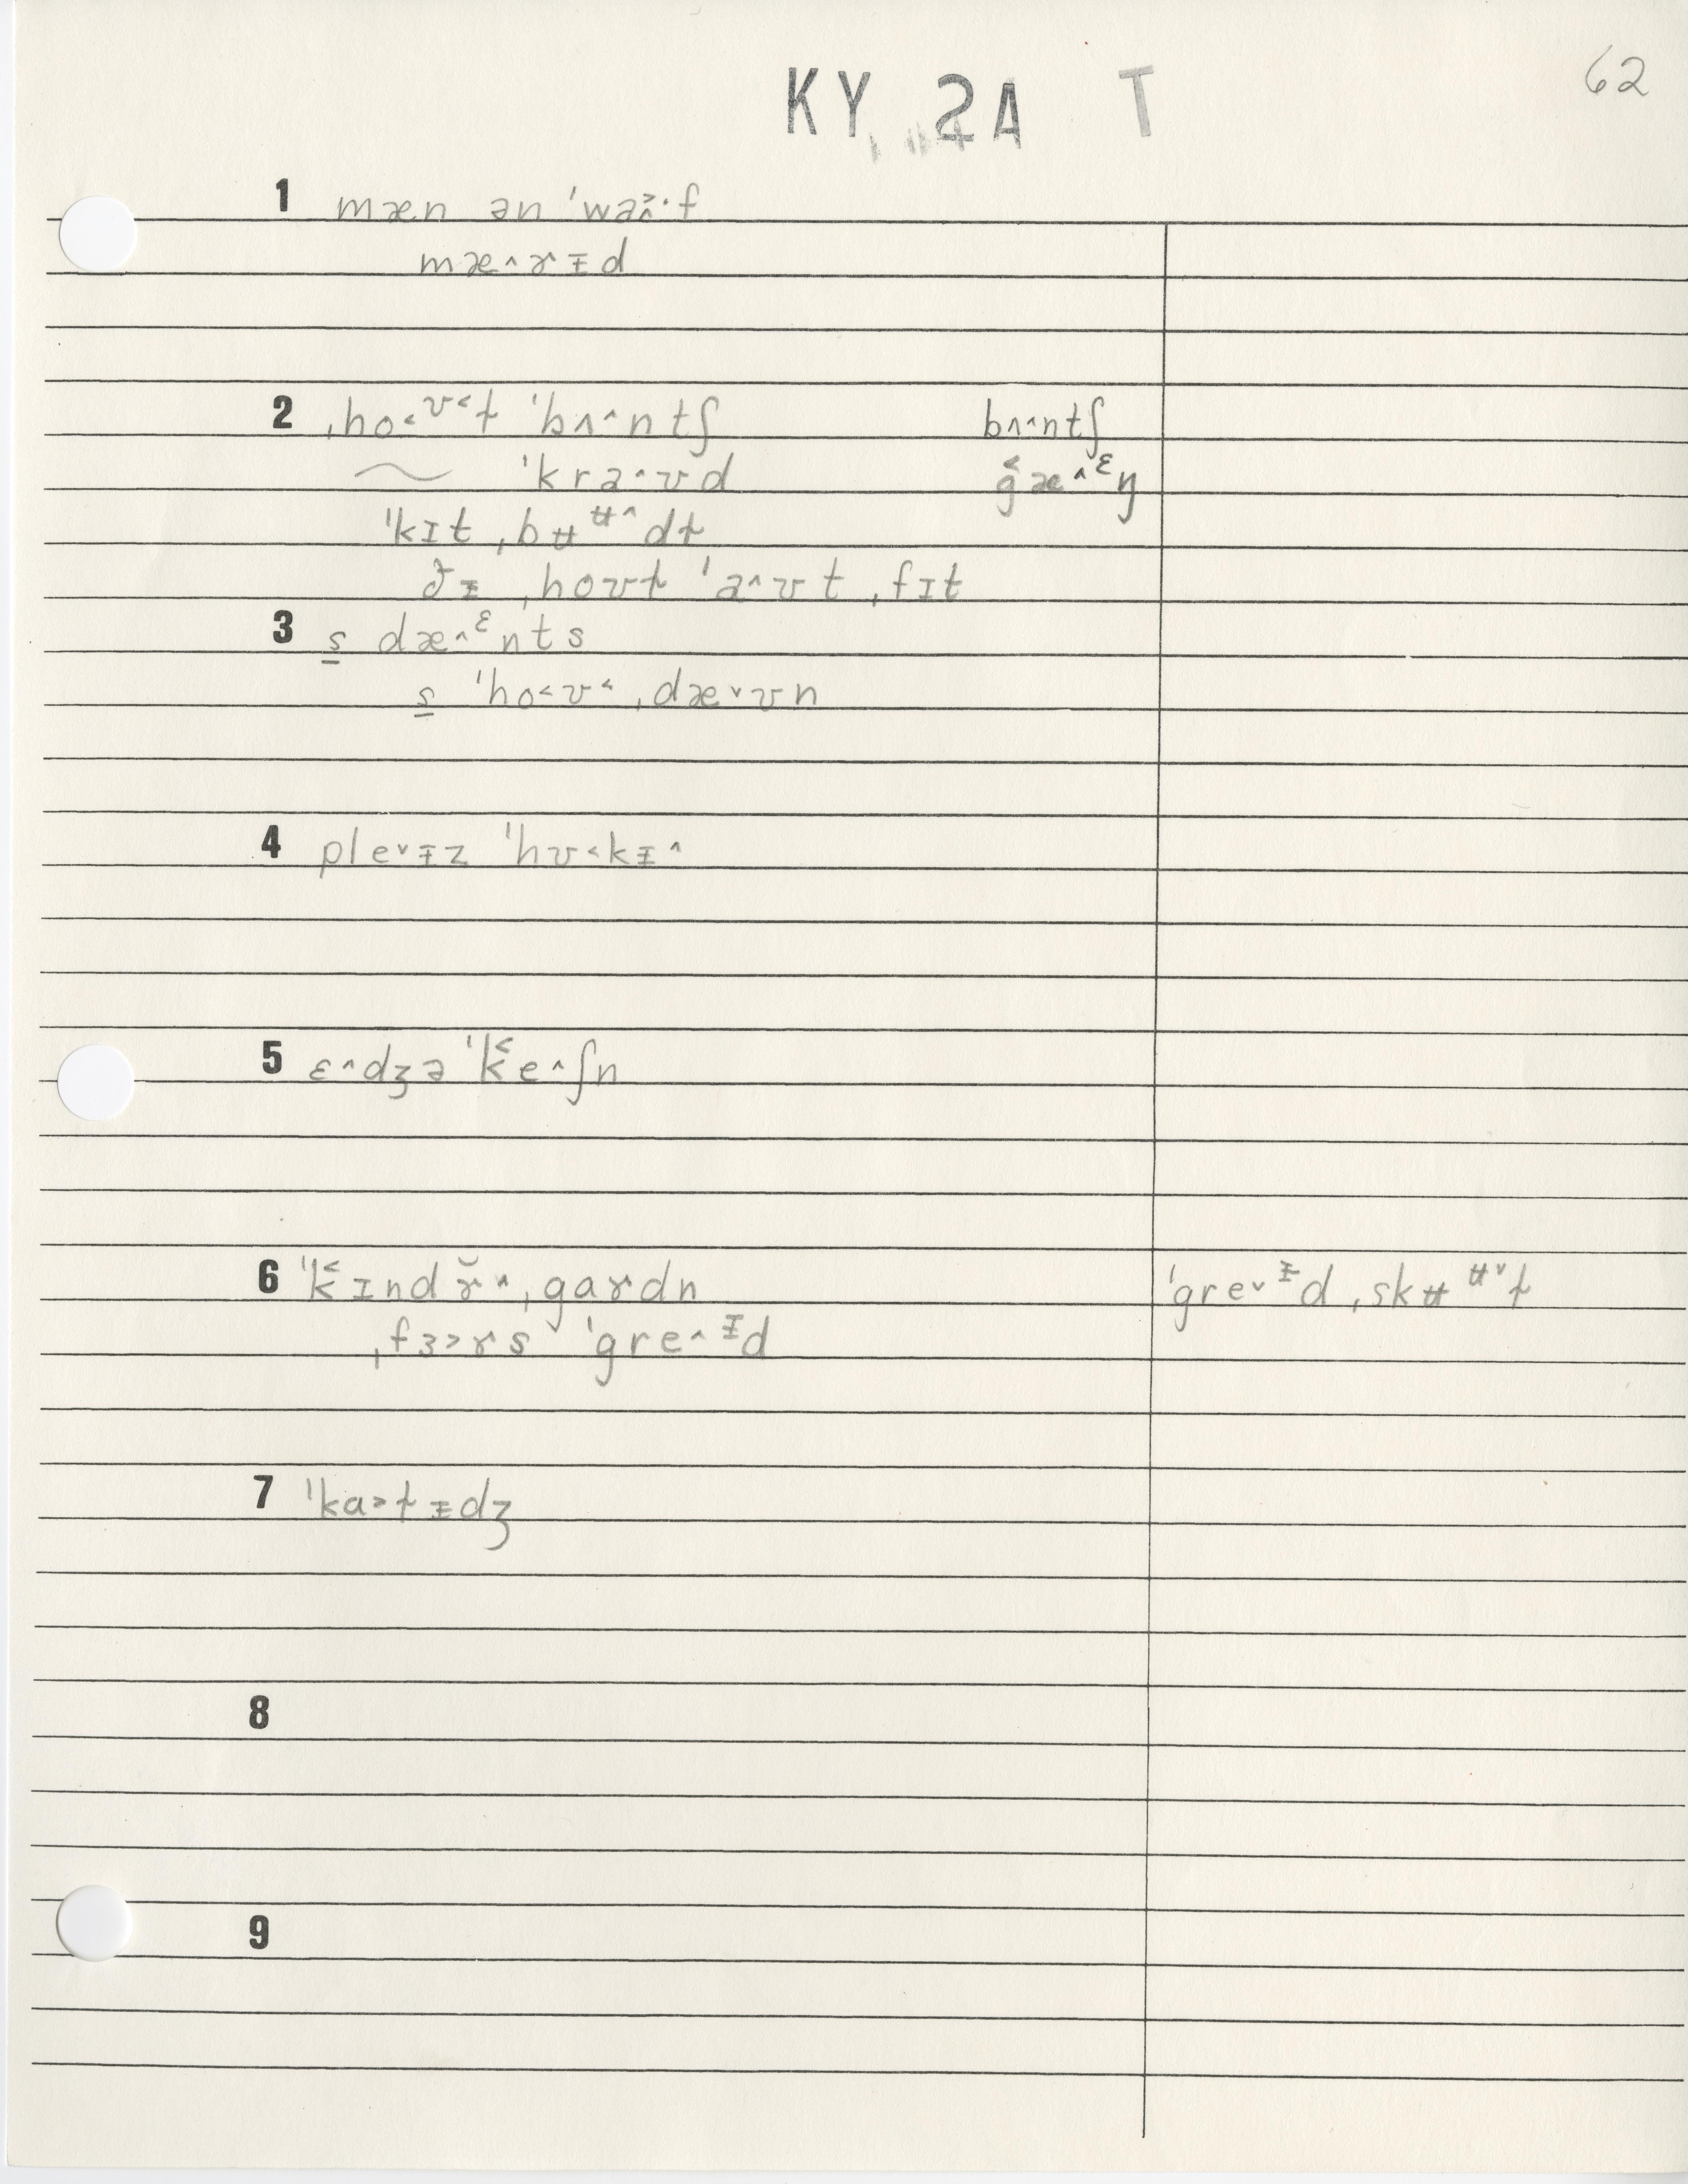 62
KY 2A T
1 mæn ən ˈwaˑf
mæ˄rᵻd
2 ˌho˂ʊ˂ɫ ˈbʌ˄ntʃ bʌ˄ntʃ
~ ˈkra˄ʊd g˂æ˄ᵋŋ
ˈkɪt ˌbʉʉ˄dɫ
ðᵻ ˌhoʊɫ ˈa˄ʊt ˌfɪt
3 s dæ˄ᵋnts
s ˈho˂ʊ˂ ˌdæ˅ʊn
4 ple˅ᵻz ˈhʊ˂kᵻ˄
5 ɛ˄dʒə ˈk˂e˄ʃn
6 ˈk˂ɪndɤ̆˄ ˌgaɤdn ˈgre˅ᵻd ˌskʉʉ˅ɫ
ˌfɜ˃ɤs ˈgre˄ᵻd
7 ˈka˃ɫᵻdʒ
8
9